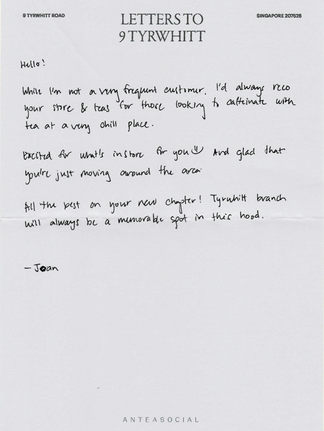 9 TYRWHITT ROAD
LETTERS TO
9 TYRWHITT
SINGAPORE 207528
Hello!
While I'm not a very frequent customer, I'd always reco
your store & teas for those looking to caffeinate with
tea at a very chill place.
Excited for what's in store for you And glad that
you're just moving around the area
All the best on your new chapter! Tyrwhitt branch
will always be a memorable spot in this hood.
— Joan
ANTEASOCIAL